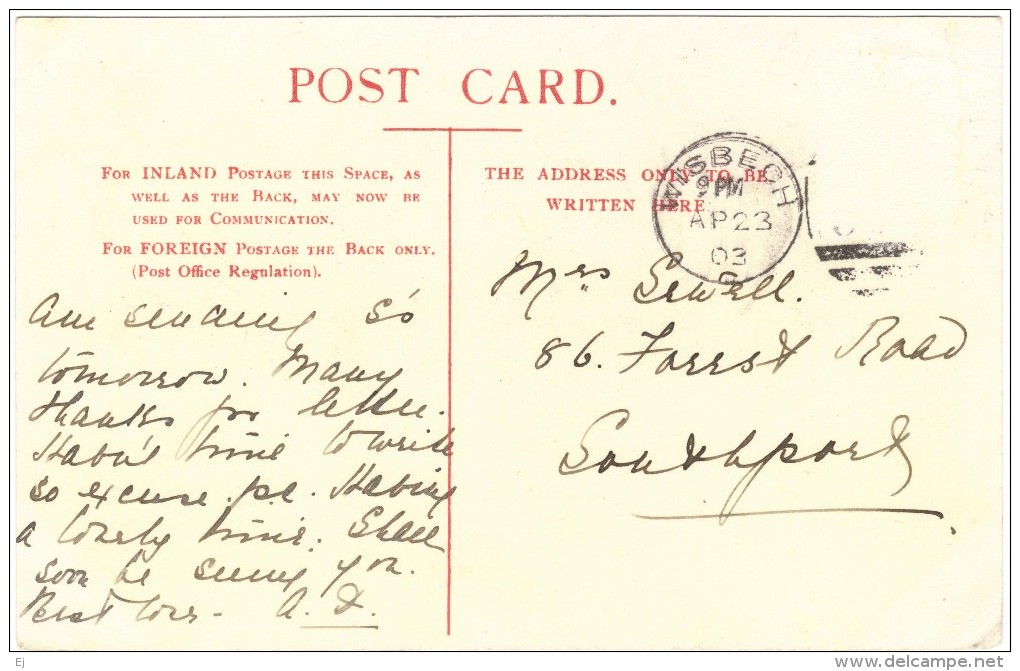 POST CARD.
FOR INLAND POSTAGE THIS SPACE, AS
WELL AS THE BACK, MAY NOW BE
USED FOR COMMUNICATION.
FOR FOREIGN POSTAGE THE BACK ONLY.
(Post Office Regulation).
THE ADDRESS ONLY TO BE
WRITTEN HERE
WISBECH
9 PM
AP 23
03
C
Am sending
tomorrow. Many
thanks for letter.
Haven't time to write
so excuse p.c. Having
a lovely time. Shall
soon be seeing you.
Best love - A. D.
Mrs Sewell.
86. Forrest Road
Southport
Ej
http://www.delcampe.net